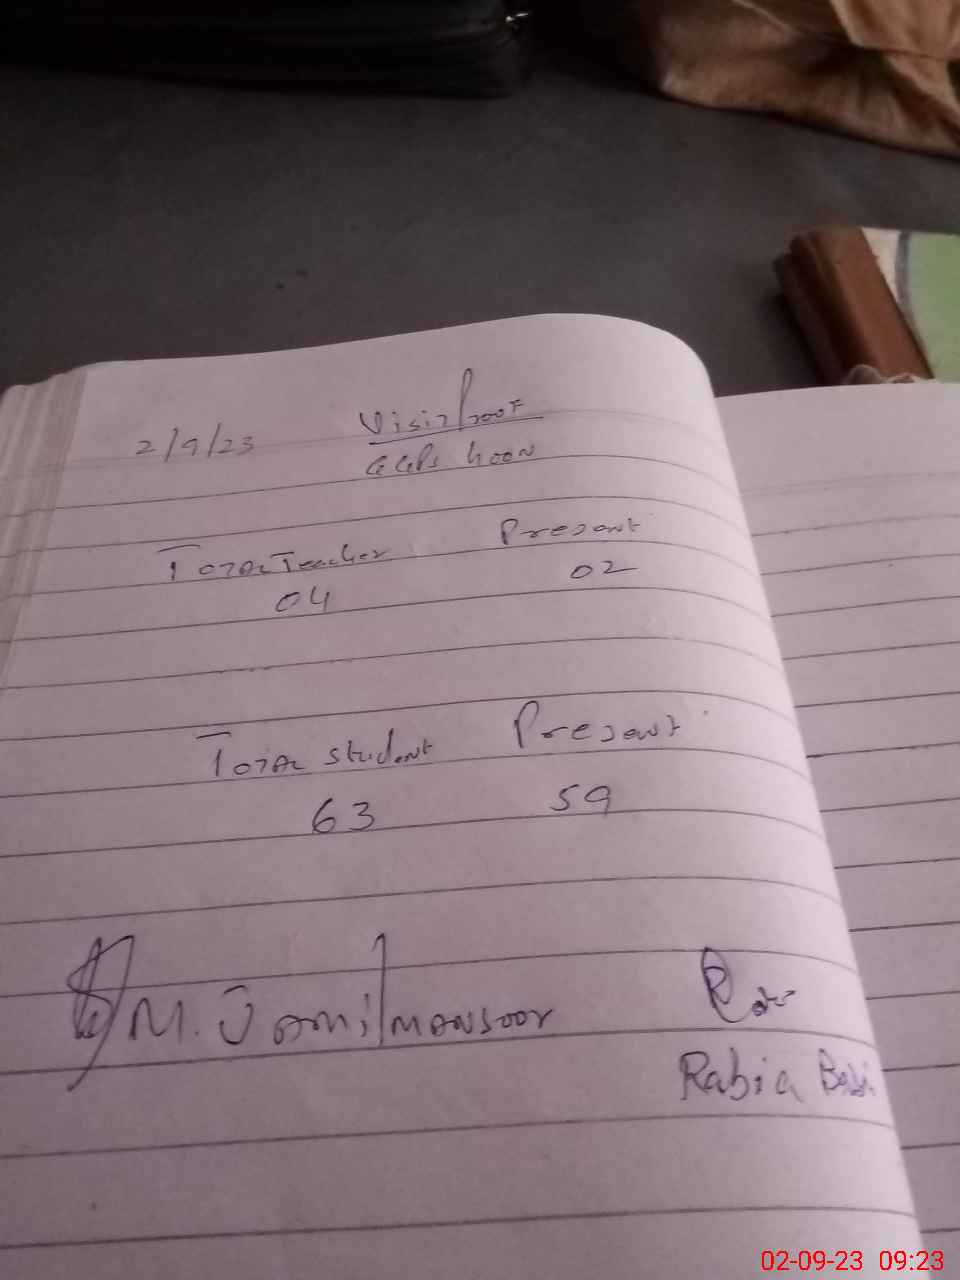 2/9/23 Visit Proof
GGPS Hoon
Total Teacher Present
04 02
Total Student Present
63 59
M. Jamil Mansoor
Rabia Bibi
02-09-23 09:23